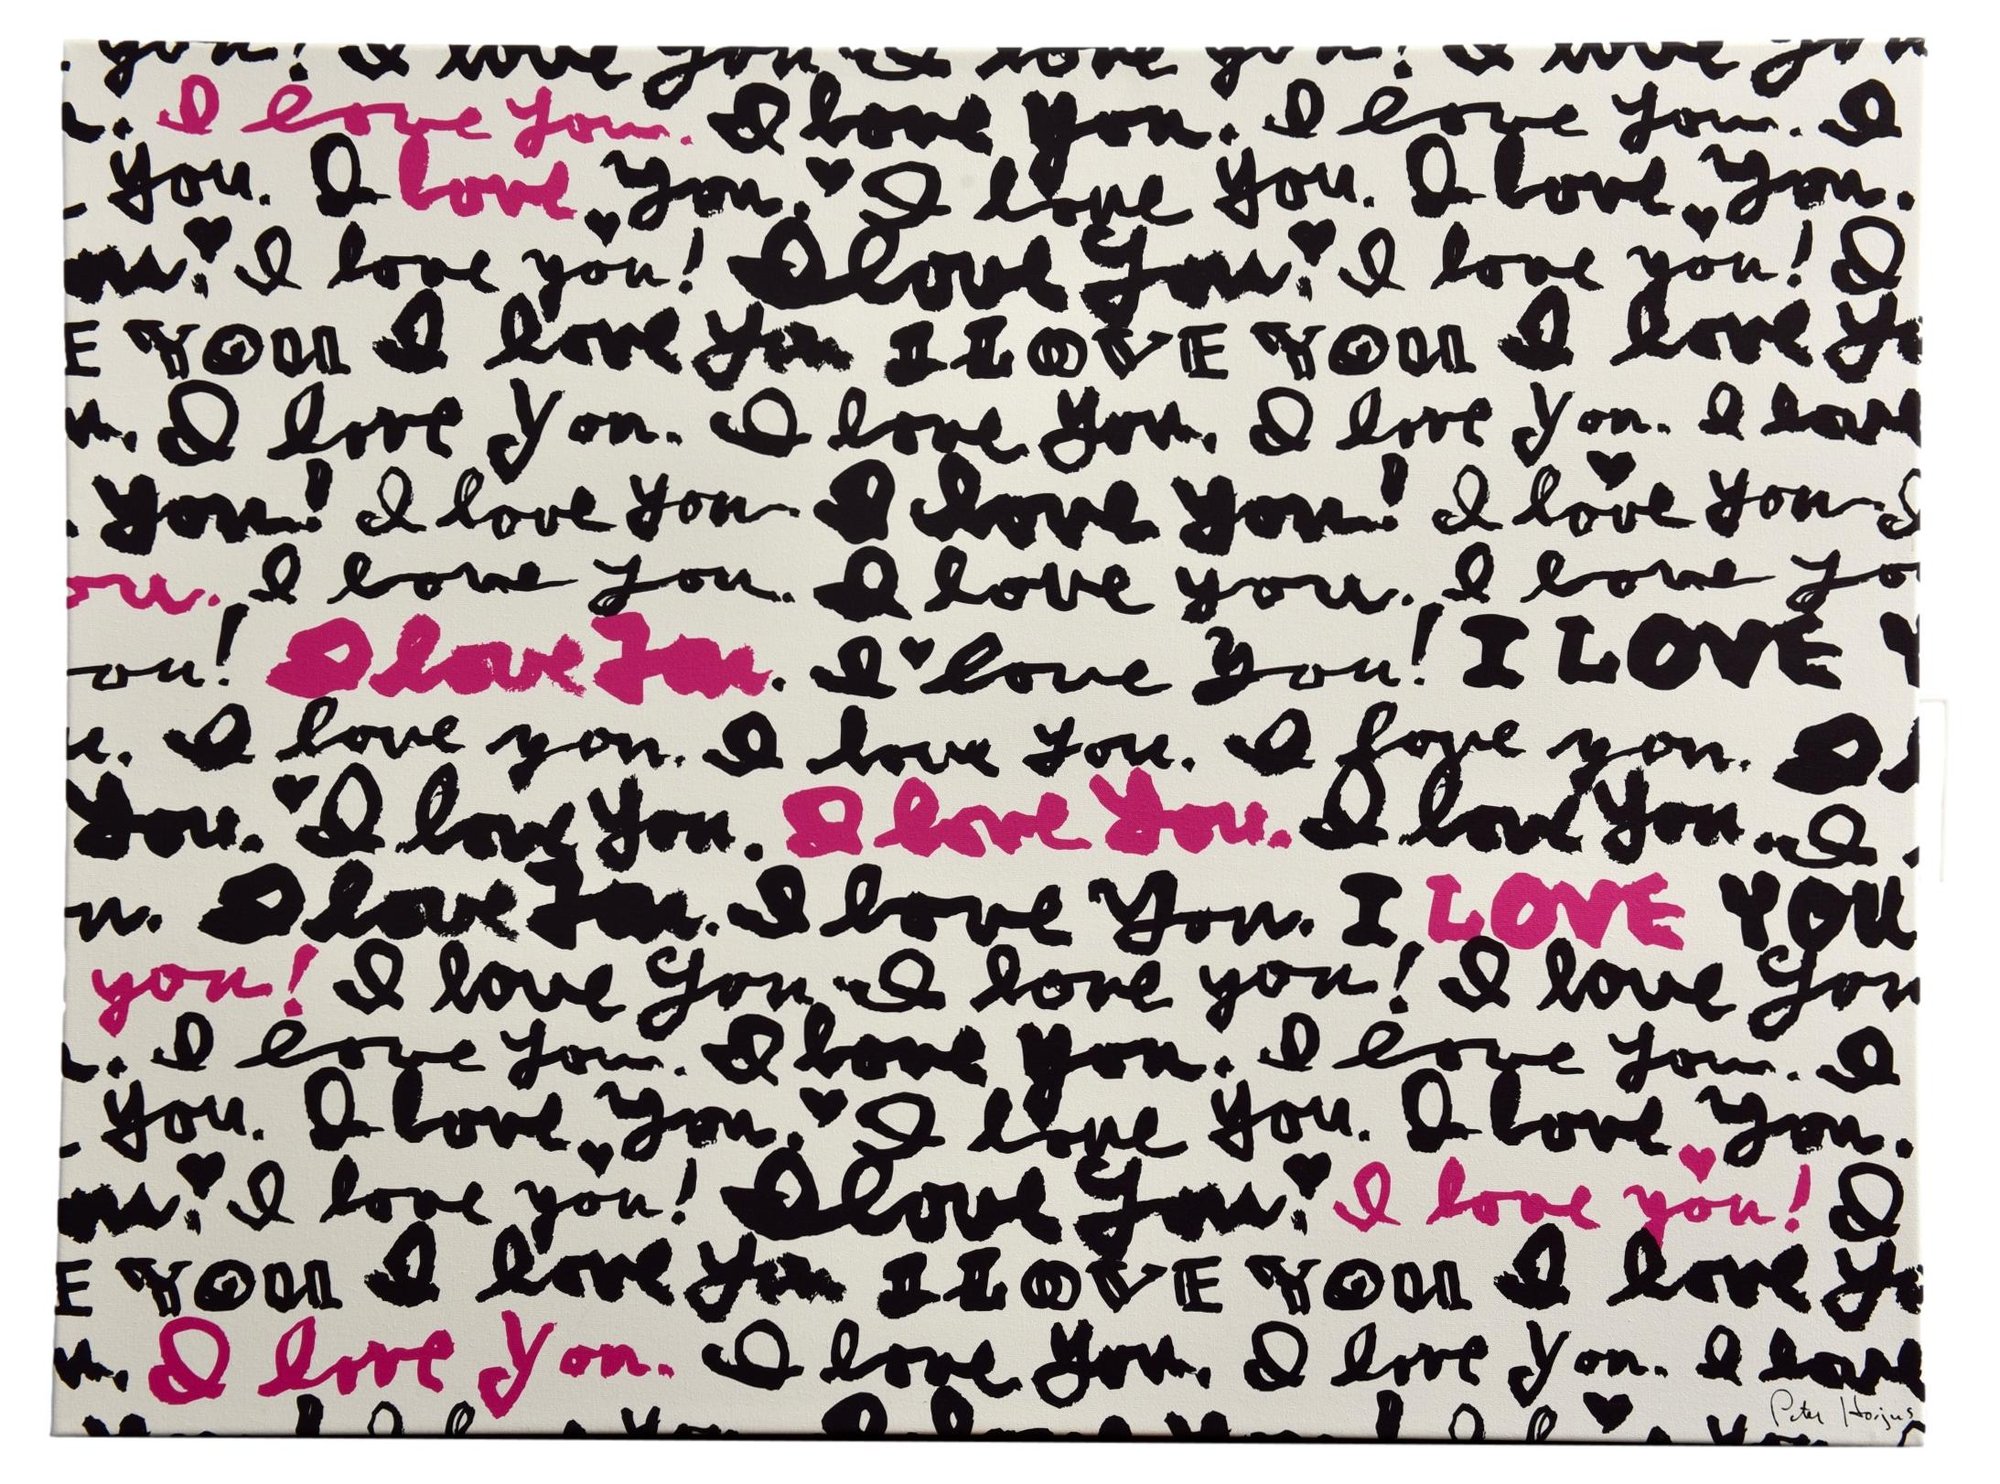 you! I love you I love you! I love you
I love you. I love you. I love you. I
you. I love you. I love you. I love you.
I love you! I love you. I love you! I
E YOU I love you I LOVE YOU I love yo
I love you. I love you. I love you. I love
you! I love you. I love you! I love you
ou. I love you. I love you. I love yo
ou! I love you. I love you! I LOVE Y
I love you. I love you. I love you.
you. I love you. I love you. I love you. I
I love you. I love you. I LOVE YOU
you! I love you I love you! I love you
I love you. I love you. I love you. I
you. I love you. I love you. I love you.
I love you! I love you. I love you! I
E YOU I love you I LOVE YOU I love yo
I love you. I love you. I love you. I love
Peter Horjus